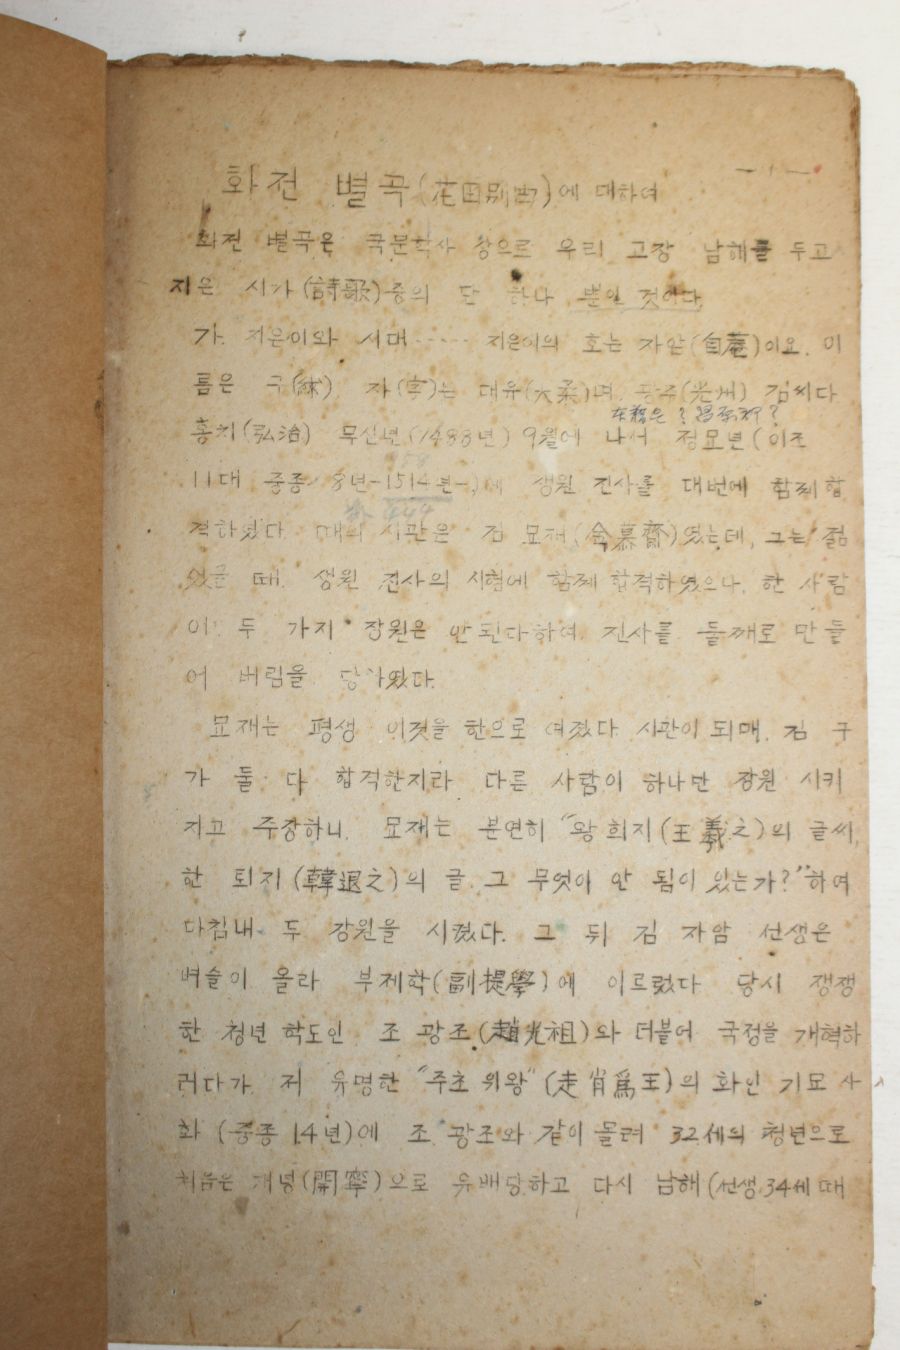 -1-
화전 별곡(花田別曲)에 대하여
화전 별곡은 국문학사 상으로 우리 고장 남해를 두고
지은 시가(詩歌)중의 단 하나 뿐인 것이다.
가. 지은이와 시대····· 지은이의 호는 자암(自菴)이요. 이
름은 구(絿). 자(字)는 대유(大柔)며. 광주(光州) 김씨다.
홍치(弘治) 무신년(1488년) 9월에 나서 정묘년(이조
11대 중종 8년-1514년-)에 생원 진사를 대번에 함께 합
격하였다. 때의 시관은 김 모재(金慕齋)였는데, 그는 젊
었을 때. 생원 진사의 시험에 함께 합격하였으나. 한 사람
이 두 가지 장원은 안된다하여. 진사를 둘째로 만들
어 버림을 당하였다.
모재는 평생 이것을 한으로 여겼다. 시관이 되매. 김 구
가 둘 다 합격한지라 다른 사람이 하나만 장원 시키
자고 주장하니. 모재는 분연히 "왕 희지(王羲之)의 글씨,
한 퇴지(韓退之)의 글. 그 무엇이 안 됨이 있는가?"하여
마침내. 두 장원을 시켰다. 그 뒤 김 자암 선생은
벼슬이 올라 부제학(副提學)에 이르렀다. 당시 쟁쟁
한 청년 학도인 조 광조(趙光祖)와 더불어 국정을 개혁하
려다가. 저 유명한 "주초 위왕"(走肖爲王)의 화인 기묘 사
화 (중종 14년)에 조 광조와 같이 몰려 32세의 청년으로
처음은 개녕(開寧)으로 유배당하고 다시 남해(선생.34세 때